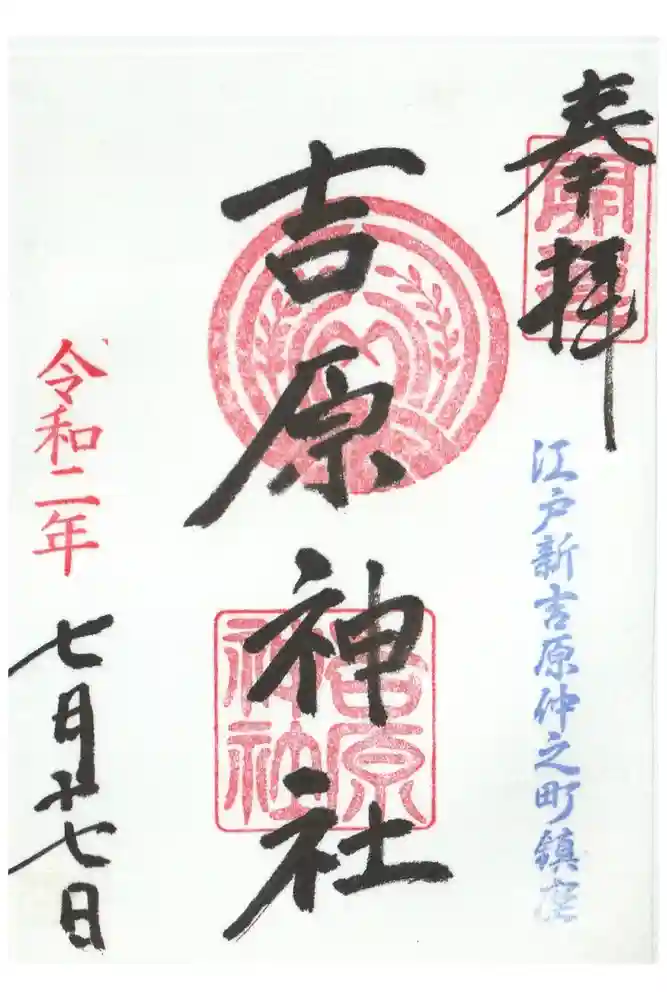 奉拝
開運
江戸新吉原仲之町鎮座
吉原神社
吉原神社
令和二年
七月廿七日